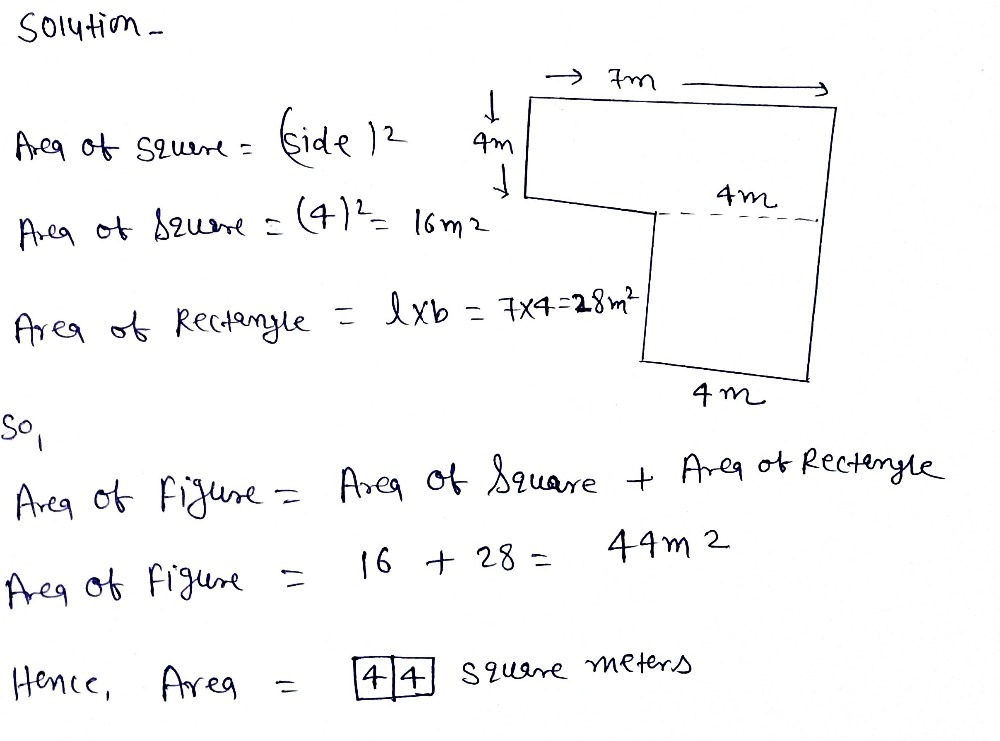 Solution -
→ 7m →
↓
4m
↓
Area of Square = (side)2
4m
Area of Square = (4)2 = 16m2
Area of Rectangle = lxb = 7x4=28m2
4m
So,
Area of Figure = Area of Square + Area of Rectangle
Area of Figure = 16 + 28 = 44m2
Hence, Area = 44 square meters